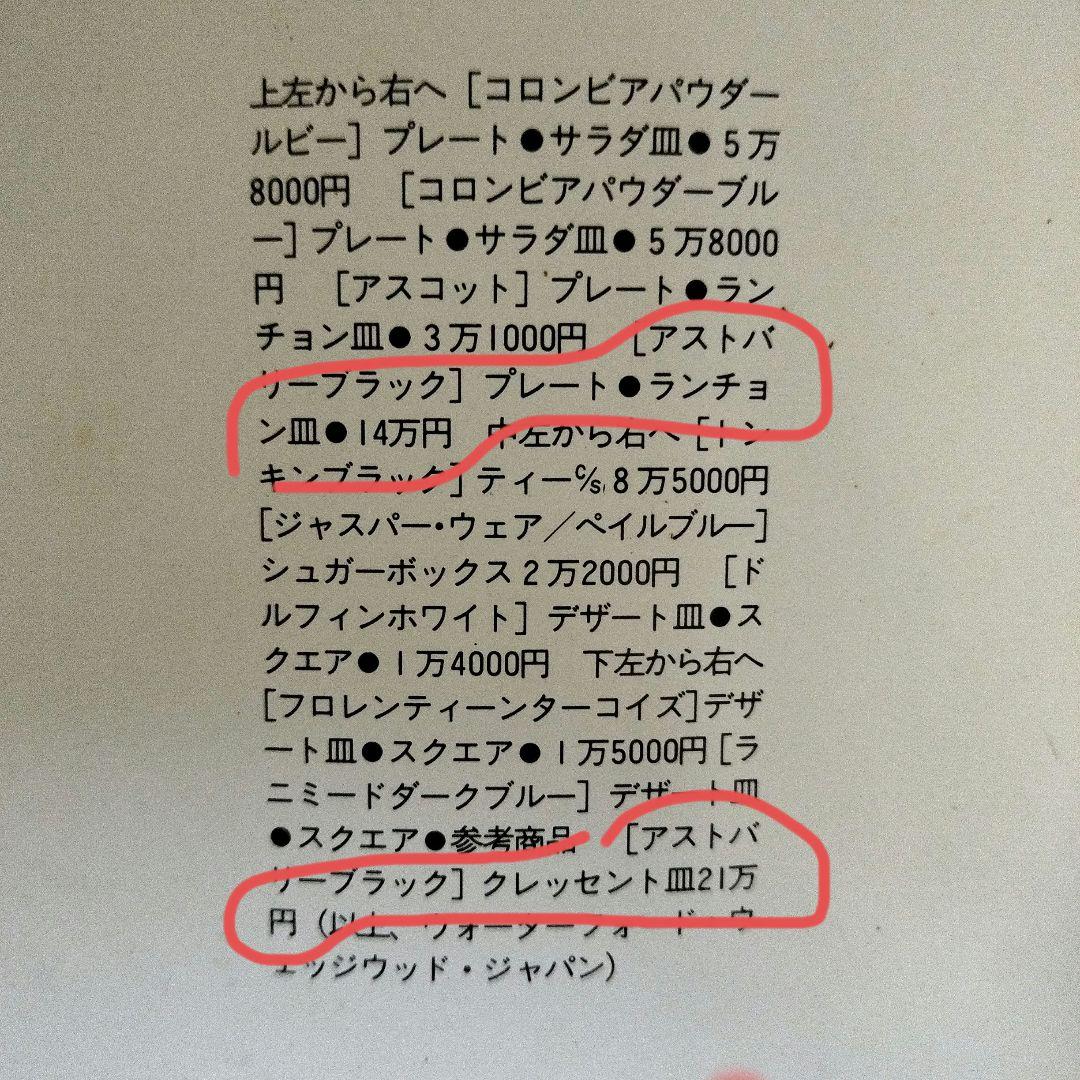 上左から右へ［コロンビアパウダー
ルビー］プレート●サラダ皿●5万
8000円　［コロンビアパウダーブル
ー］プレート●サラダ皿●5万8000
円　［アスコット］プレート●ラン
チョン皿●3万1000円　［アストバ
リーブラック］プレート●ランチョ
ン皿●14万円　中左から右へ［トン
キンブラック］ティー℅s 8万5000円
［ジャスパー・ウェア／ペイルブルー］
シュガーボックス2万2000円　［ド
ルフィンホワイト］デザート皿●ス
クエア●1万4000円　下左から右へ
［フロレンティーンターコイズ］デザ
ート皿●スクエア●1万5000円［ラ
ニミードダークブルー］デザート皿
●スクエア●参考商品　［アストバ
リーブラック］クレッセント皿21万
円（以上、ウォーターフォード・ウ
ェッジウッド・ジャパン）